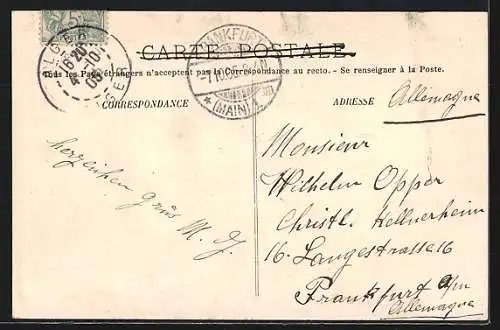 CARTE POSTALE
Tous les Pays étrangers n'acceptent pas la Correspondance au recto. - Se renseigner à la Poste.
CORRESPONDANCE
ADRESSE
ALGER
16 20
4 -10
05
FRANKFURT
-7.10.05.
* (MAIN)
herzlichen Gruss M. J.
Allemagne
Monsieur
Wilhelm Opper
Christl. Kellnerheim
16. Langestrasse 16
Frankfurt a/m
Allemagne